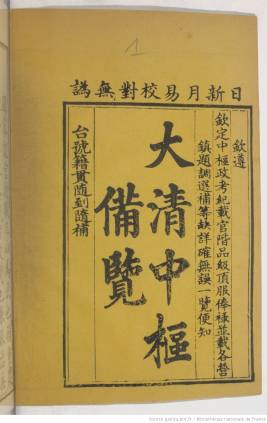 1
日新月易校對無譌
欽遵
欽定中樞政考紀載官階品級頂服俸祿並載各營
鎮題調選補等缺詳確無誤一覽便知
大清中樞
備覽
台號籍貫隨到隨補
Source gallica.bnf.fr / Bibliothèque nationale de France